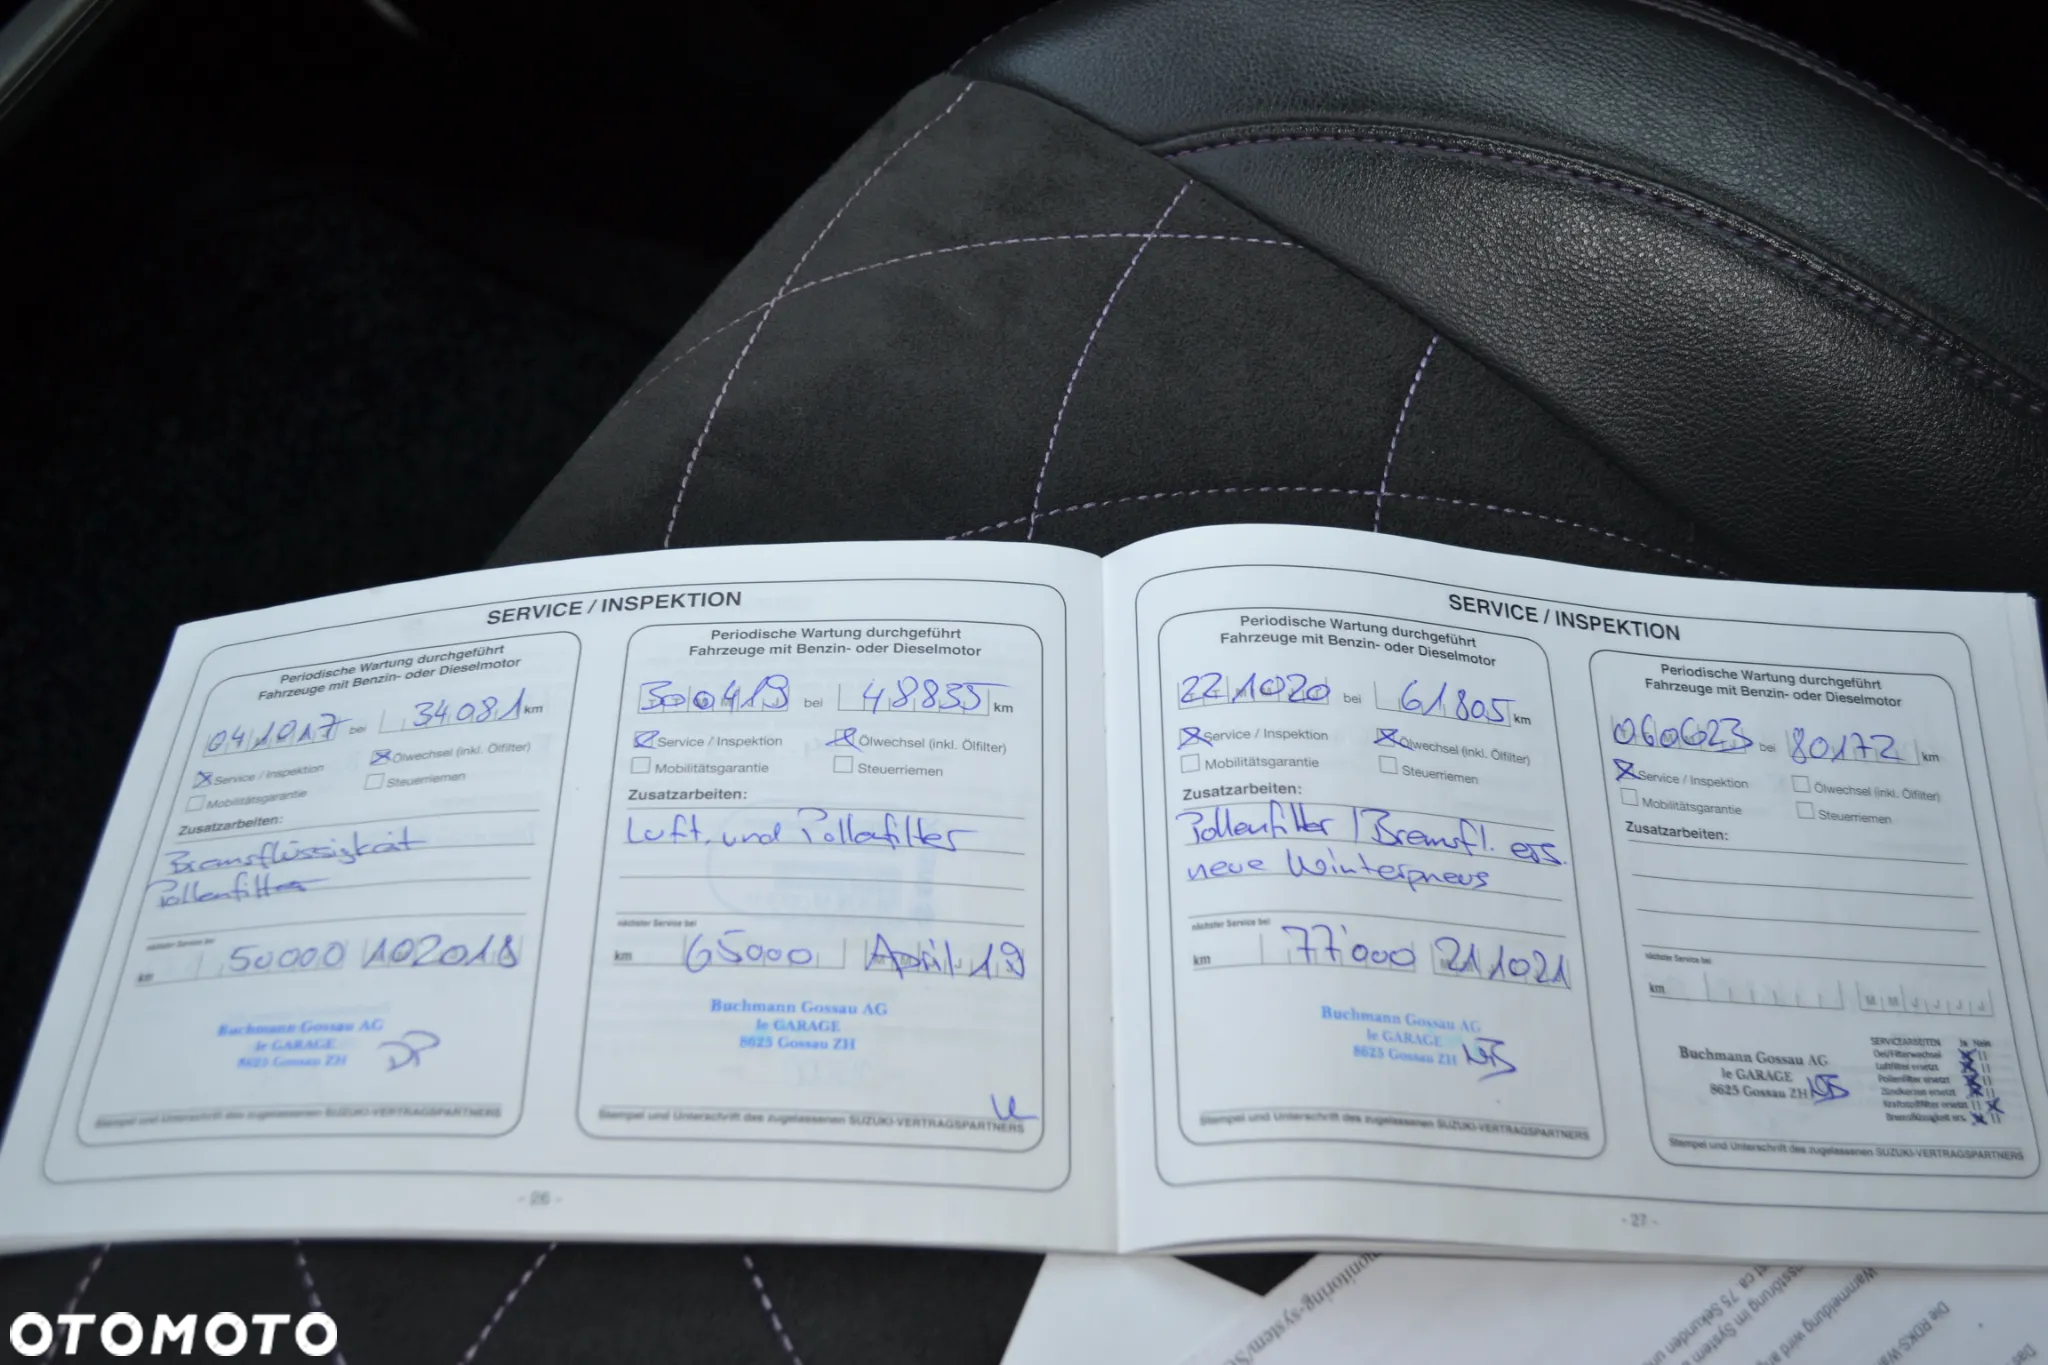 SERVICE / INSPEKTION
Periodische Wartung durchgeführt
Fahrzeuge mit Benzin- oder Dieselmotor
041017 bei 34081 km
Service / Inspektion Ölwechsel (inkl. Ölfilter)
Mobilitätsgarantie Steuerriemen
Zusatzarbeiten:
Bremsflüssigkeit
Pollenfilter
nächster Service bei
km 50000 102018
Buchmann Gossau AG
le GARAGE
8625 Gossau ZH
DP
Stempel und Unterschrift des zugelassenen SUZUKI-VERTRAGSPARTNERS
Periodische Wartung durchgeführt
Fahrzeuge mit Benzin- oder Dieselmotor
300419 bei 48835 km
Service / Inspektion Ölwechsel (inkl. Ölfilter)
Mobilitätsgarantie Steuerriemen
Zusatzarbeiten:
Luft. und Pollenfilter
nächster Service bei
km 65000 April 19
Buchmann Gossau AG
le GARAGE
8625 Gossau ZH
Stempel und Unterschrift des zugelassenen SUZUKI-VERTRAGSPARTNERS
- 26 -
SERVICE / INSPEKTION
Periodische Wartung durchgeführt
Fahrzeuge mit Benzin- oder Dieselmotor
221020 bei 61805 km
Service / Inspektion Ölwechsel (inkl. Ölfilter)
Mobilitätsgarantie Steuerriemen
Zusatzarbeiten:
Pollenfilter / Bremsfl. ers.
neue Winterpneus
nächster Service bei
km 77'000 211021
Buchmann Gossau AG
le GARAGE
8625 Gossau ZH
Stempel und Unterschrift des zugelassenen SUZUKI-VERTRAGSPARTNERS
Periodische Wartung durchgeführt
Fahrzeuge mit Benzin- oder Dieselmotor
060623 bei 80172 km
Service / Inspektion Ölwechsel (inkl. Ölfilter)
Mobilitätsgarantie Steuerriemen
Zusatzarbeiten:
nächster Service bei
km M M J J J J
Buchmann Gossau AG
le GARAGE
8625 Gossau ZH
SERVICEARBEITEN Ja Nein
Oel/Filterwechsel
Luftfilter ersetzt
Pollenfilter ersetzt
Zündkerzen ersetzt
Kraftstofffilter ersetzt
Bremsflüssigkeit ers.
Stempel und Unterschrift des zugelassenen SUZUKI-VERTRAGSPARTNERS
- 27 -
OTOMOTO